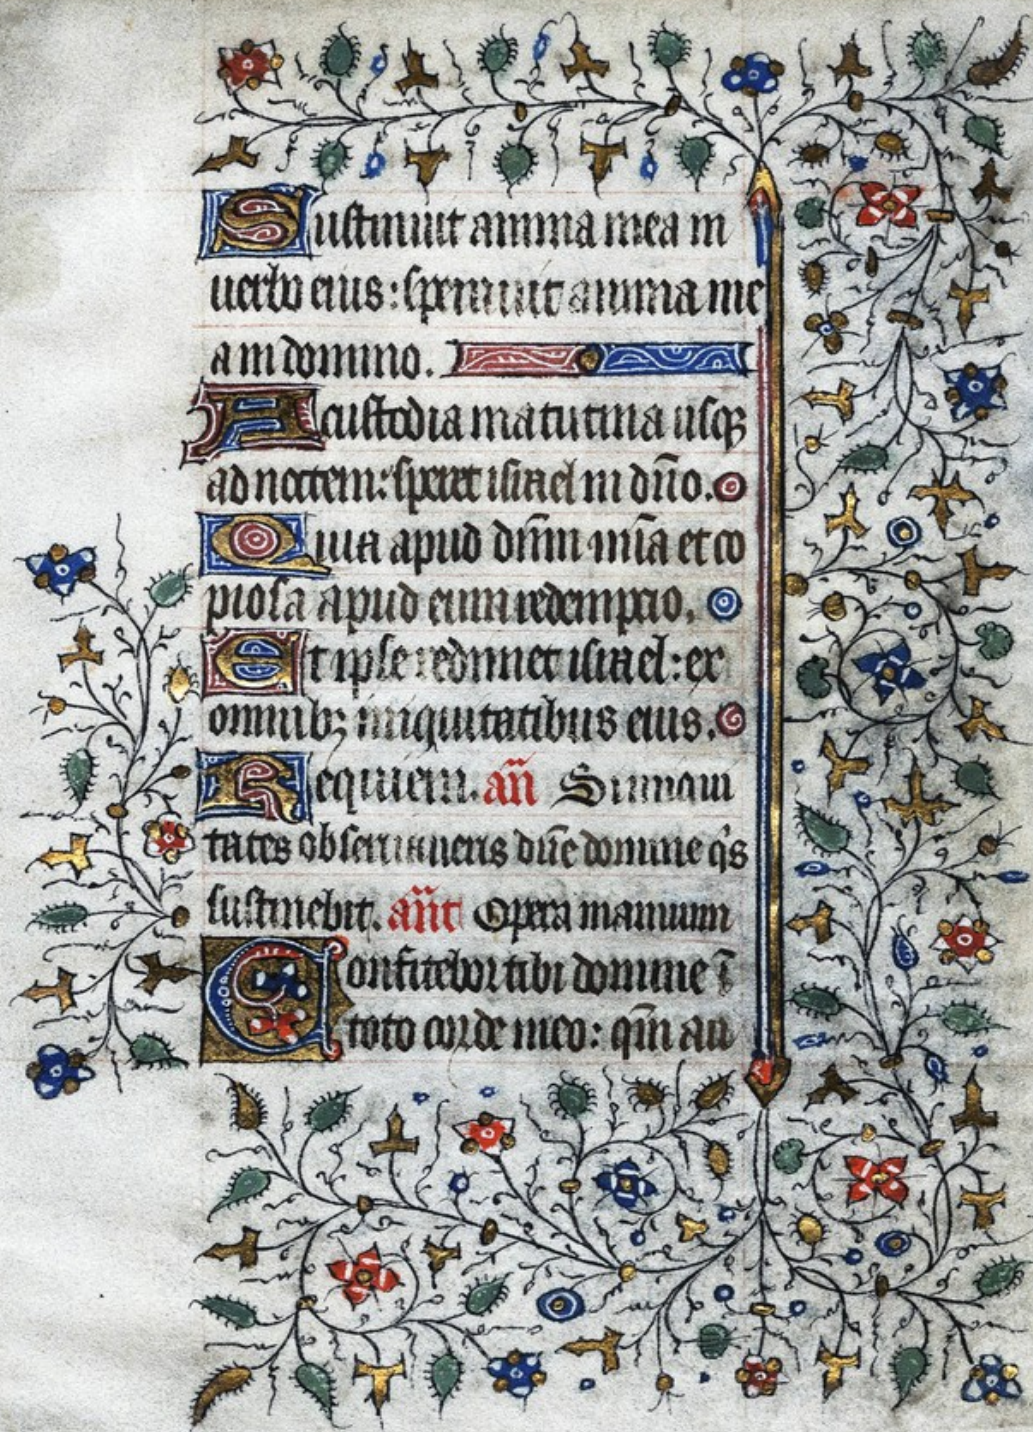 Sustinuit anima mea in
uerbo eius: sperauit anima me
a in domino.
A custodia matutina usqꝫ
ad noctem: speret israel in dño.
Quia apud dñm mĩa et co
piosa apud eum redempcio.
Et ipse redimet israel: ex
omnibꝫ iniquitatibus eius.
Requiem. añ Si iniqui
tates obseruaueris dñe domine qͥs
sustinebit. añt Opera manuum
Confitebor tibi domine ĩ
toto corde meo: qm̃ au